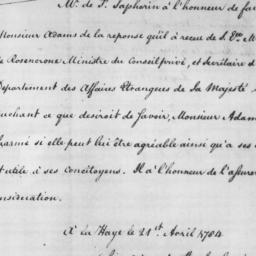 Mr. de St. Saphorin à l'honneur de fai
Monsieur Adams de la reponse qu'il a recue de S. Exc. M
de Rosencrone Ministre du Conseil privé, et Secrétaire d
Departement des Affaires Etrangeres de Sa Majesté
touchant ce que desiroit de savoir, Monsieur Adam
charmé si elle peut lui être agréable ainsi qu'a ses
et utile à ses concitoyens. Il a l'honneur de l'assurer
onsideration.
A la Haye le 21st. Avril 1784